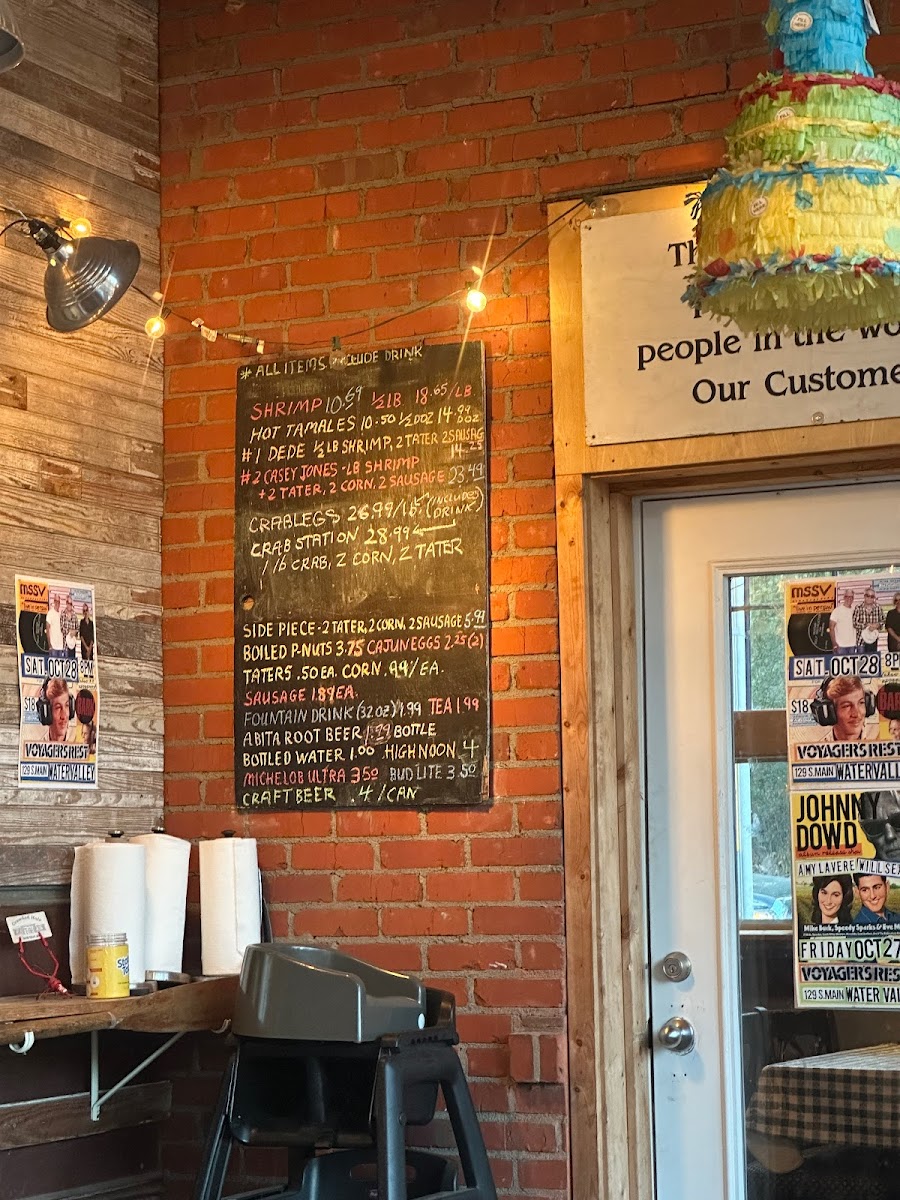 * ALL ITEMS INCLUDE DRINK
SHRIMP 10.69 ½ LB 18.65/LB
HOT TAMALES 10.50 ½ DOZ 14.99 DOZ
#1 DEDE ½ LB SHRIMP, 2 TATER 2 SAUSAG
14.25
#2 CASEY JONES - LB SHRIMP
+ 2 TATER, 2 CORN, 2 SAUSAGE 23.49
CRABLEGS 26.99/LB. (INCLUDES DRINK)
CRAB STATION 28.99
1 lb CRAB, 2 CORN, 2 TATER
SIDE PIECE - 2 TATER, 2 CORN, 2 SAUSAGE 5.99
BOILED P-NUTS 3.75 CAJUN EGGS 2.25 (2)
TATERS .50 EA. CORN .99/EA.
SAUSAGE 1.89 EA.
FOUNTAIN DRINK (32oz) 1.99 TEA 1.99
ABITA ROOT BEER 1.99 BOTTLE
BOTTLED WATER 1.00 HIGH NOON 4
MICHELOB ULTRA 3.50 BUD LITE 3.50
CRAFT BEER .4/CAN
people in the wo
Our Custome
MSSV
SAT. OCT 28 8PM
$18
BARD
VOYAGERS REST
129 S. MAIN WATER VALLEY
MSSV
SAT. OCT 28 8P
$18
BAR
VOYAGERS REST
129 S. MAIN WATER VALL
JOHNNY
DOWD
album release show
AMY LAVERE WILL SE
FRIDAY OCT 27
VOYAGERS RES
129 S. MAIN WATER VAL